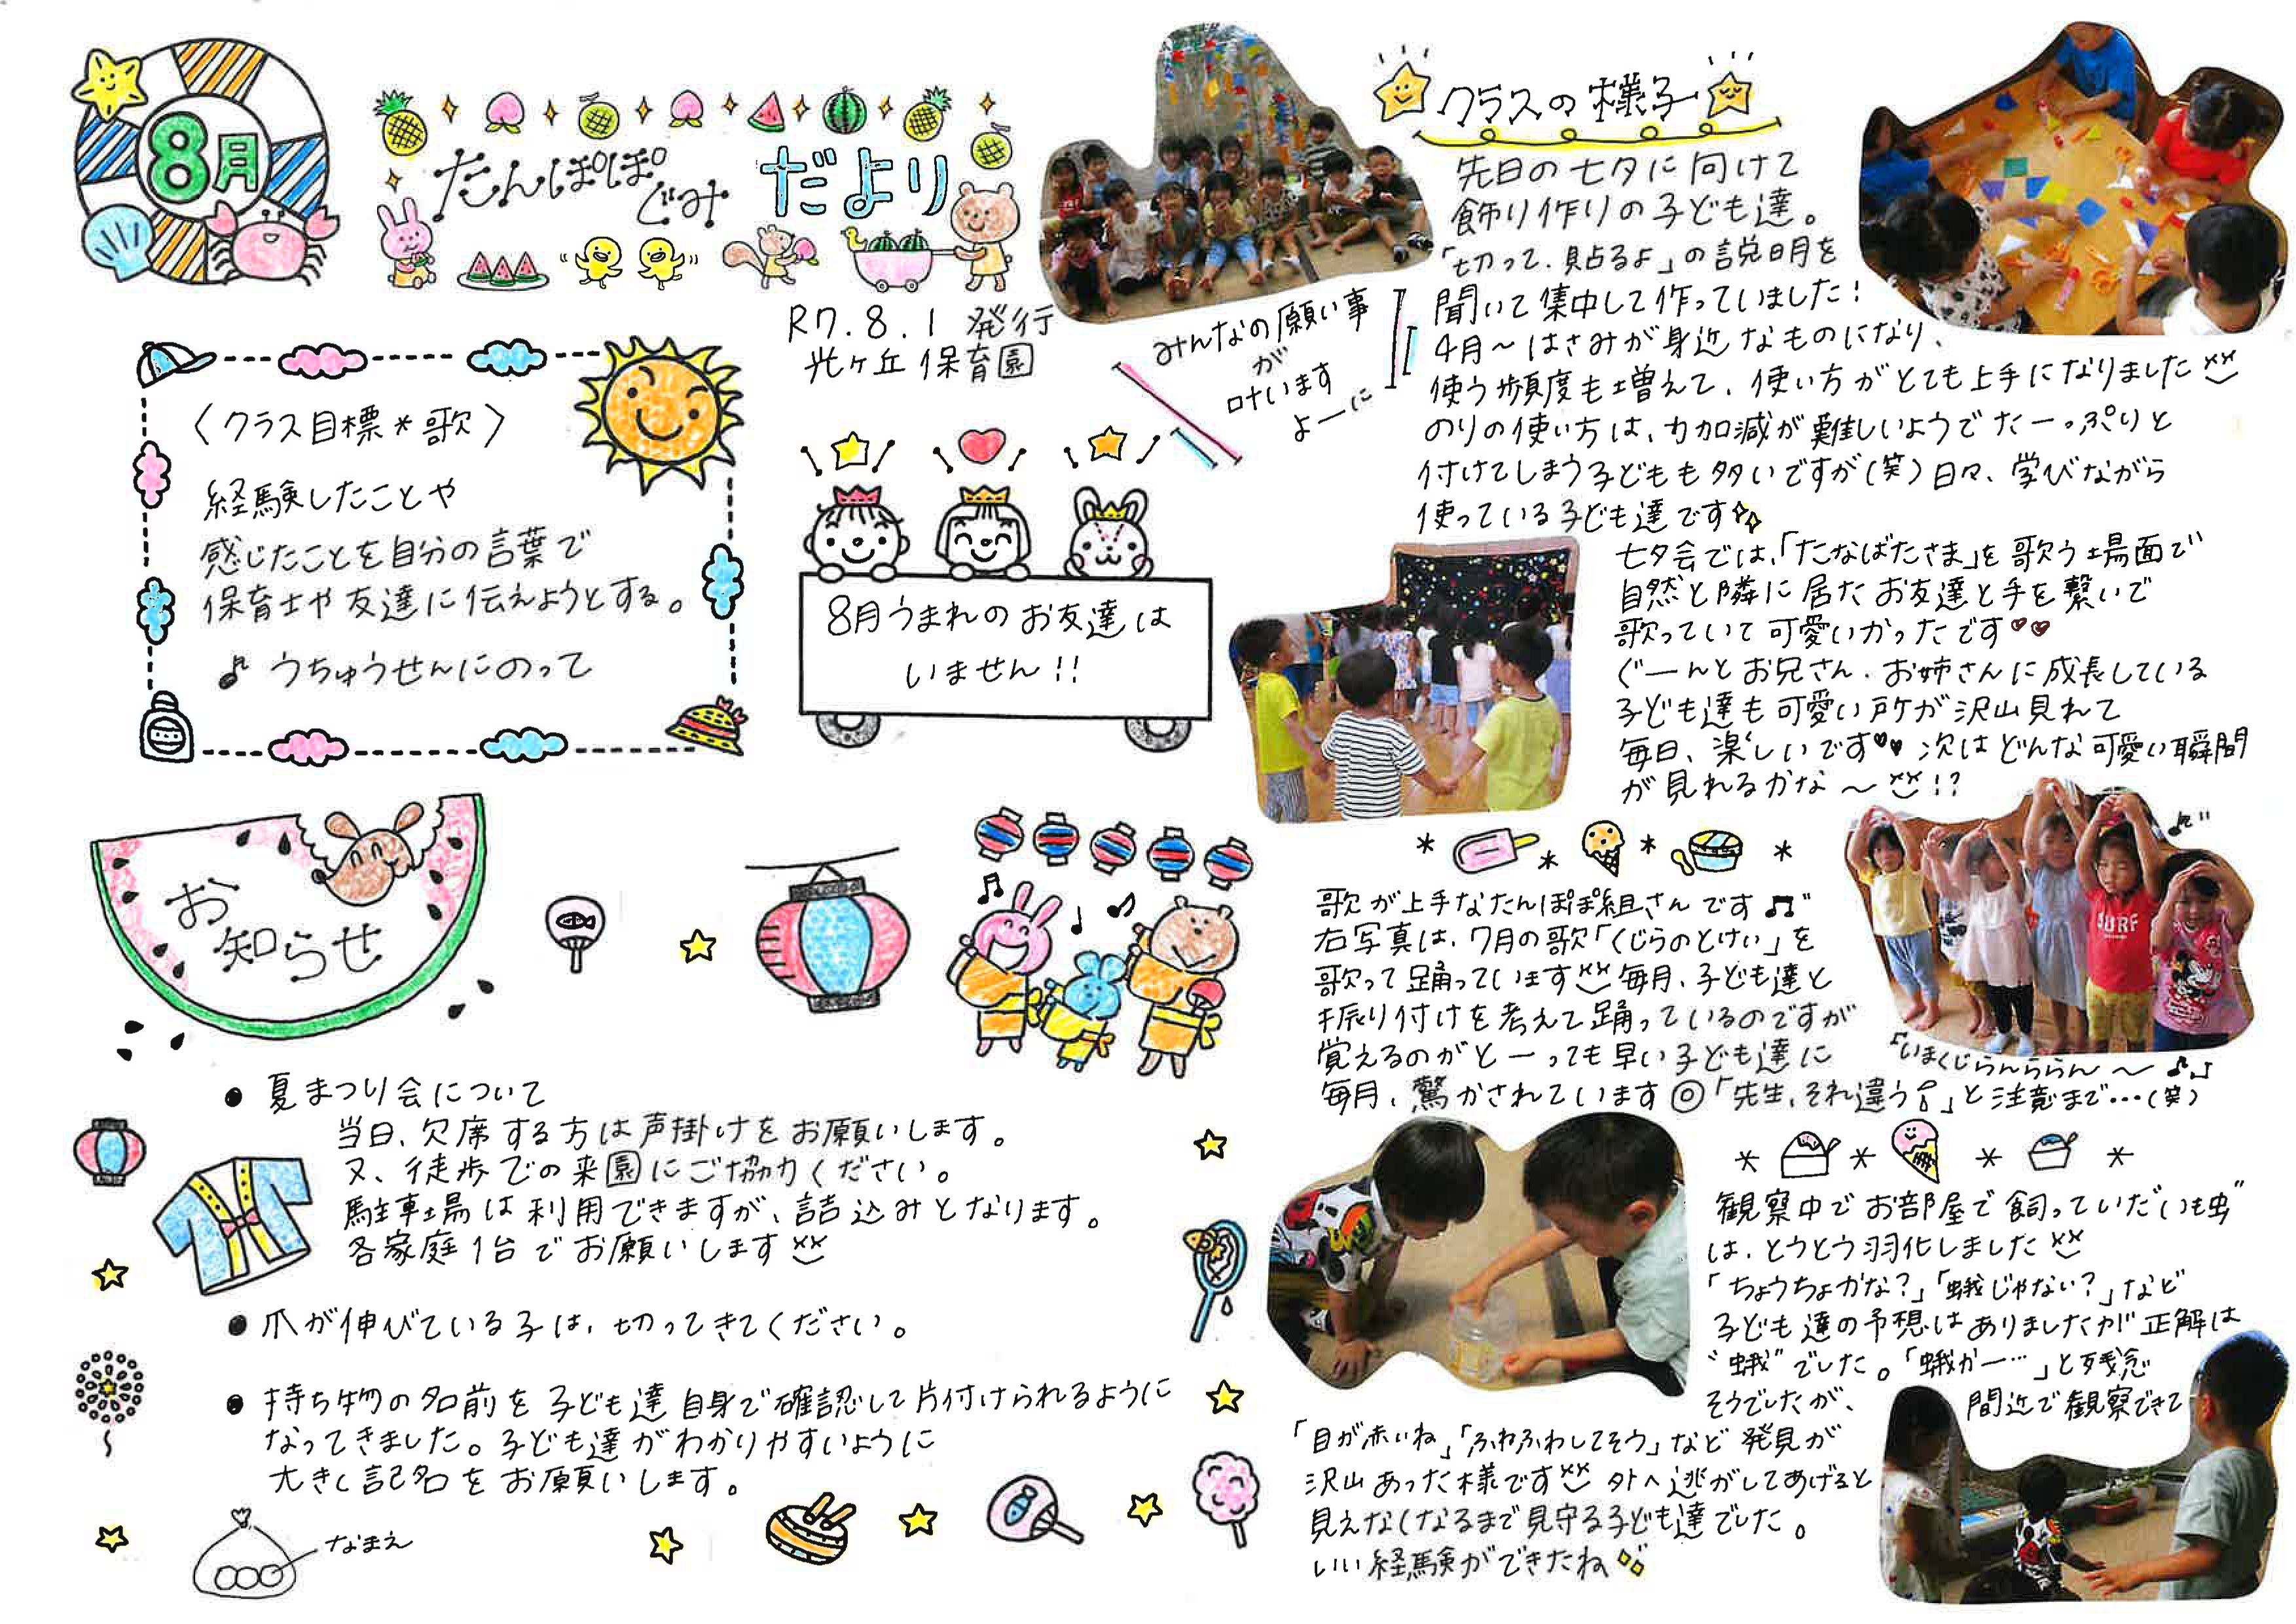 8月
たんぽぽぐみ だより
R7.8.1 発行
光ヶ丘保育園
〈クラス目標*歌〉
経験したことや
感じたことを自分の言葉で
保育士や友達に伝えようとする。
♪ うちゅうせんにのって
8月うまれのお友達は
いません!!
お知らせ
● 夏まつり会について
当日、欠席する方は声掛けをお願いします。
又、徒歩での来園にご協力ください。
駐車場は利用できますが、詰込みとなります。
各家庭1台でお願いします
● 爪が伸びている子は、切ってきてください。
● 持ち物の名前を子ども達自身で確認して片付けられるように
なってきました。子ども達がわかりやすいように
大きく記名をお願いします。
なまえ
みんなの願い事
が
叶います
よーに
クラスの様子
先日の七夕に向けて
飾り作りの子ども達。
「切って、貼るよ」の説明を
聞いて集中して作っていました!
4月〜はさみが身近なものになり、
使う頻度も増えて、使い方がとても上手になりました
のりの使い方は、力加減が難しいようでたーっぷりと
付けてしまう子どもも多いですが(笑)日々、学びながら
使っている子ども達です
七夕会では、「たなばたさま」を歌う場面で
自然と隣に居たお友達と手を繋いで
歌っていて可愛いかったです♡♡
ぐーんとお兄さん、お姉さんに成長している
子ども達も可愛い所が沢山見れて
毎日、楽しいです♥♥ 次はどんな可愛い瞬間
が見れるかな〜!?
歌が上手なたんぽぽ組さんです♫
右写真は、7月の歌「くじらのとけい」を
歌って踊っています 毎月、子ども達と
振り付けを考えて踊っているのですが
覚えるのがとーっても早い子ども達に
毎月、驚かされています◎「先生、それ違う!」と注意まで…(笑)
「いまくじらんららん〜♪♪
観察中でお部屋で飼っていた"いも虫"
は、とうとう羽化しました
「ちょうちょかな?」「蛾じゃない?」など
子ども達の予想はありましたが正解は
"蛾"でした。「蛾かー…」と残念
そうでしたが、間近で観察できて
「目が赤いね」「ふわふわしてそう」など発見が
沢山あった様です 外へ逃がしてあげると
見えなくなるまで見守る子ども達でした。
いい経験ができたね